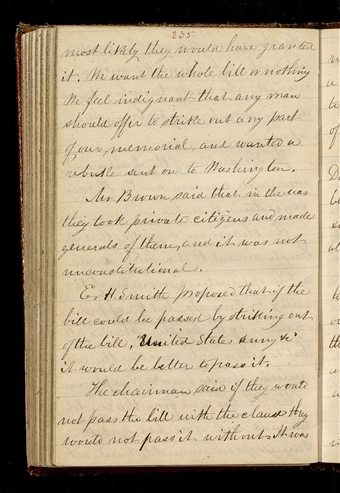 235
most likely they would have granted
it. We want the whole bill or nothing
We feel indignant that any man
should offer to strike out any part
of our memorial, and wanted a
rebuke sent on to Washington.
Mr Brown said that in the war
they took private citizens and made
generals of them, and it was not
unconstitutional.
Er H. Smith proposed that if the
bill could be passed by striking out
of the bill, United States army &c
it would be better to pass it.
The chairman said if they would
not pass the bill with the clause they
would not pass it without. It was